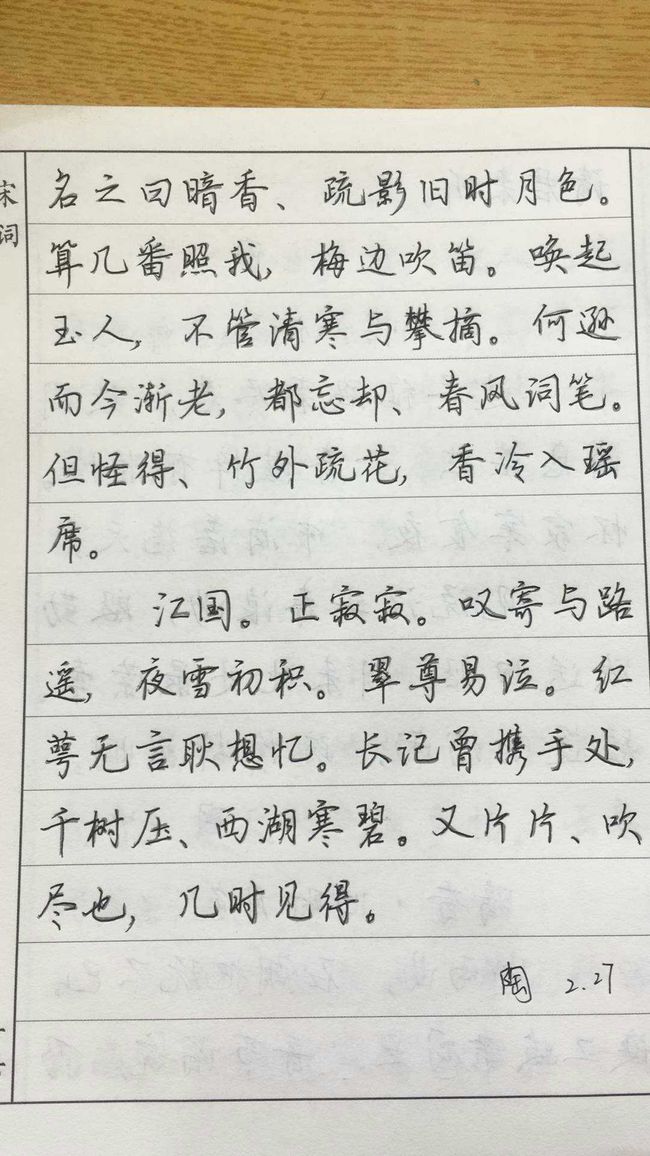 宋词
名之曰暗香、疏影旧时月色。
算几番照我，梅边吹笛。唤起
玉人，不管清寒与攀摘。何逊
而今渐老，都忘却、春风词笔。
但怪得、竹外疏花，香冷入瑶
席。
江国。正寂寂。叹寄与路
遥，夜雪初积。翠尊易泣。红
萼无言耿想忆。长记曾携手处，
千树压、西湖寒碧。又片片、吹
尽也，几时见得。
陶 2.27